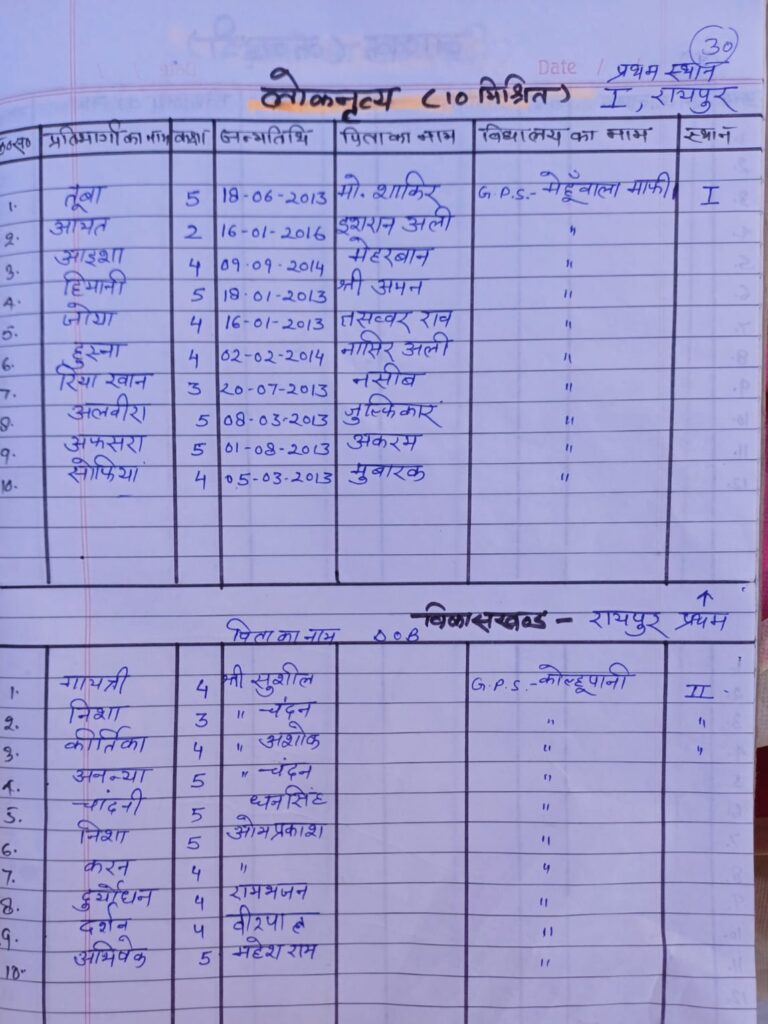 30
Date /
प्रथम स्थान
लोकनृत्य (10 मिश्रित) I, रायपुर
क्र०सं० प्रतिभागी का नाम कक्षा जन्मतिथि पिता का नाम विद्यालय का नाम स्थान
1. तूबा 5 18-06-2013 मो. शाकिर G.P.S.- मेहूँवाला माफी I
2. आयत 2 16-01-2016 इशरान अली "
3. आइशा 4 09-09-2014 मेहरबान "
4. हिमानी 5 18-01-2013 श्री अमन "
5. जोया 4 16-01-2013 तसव्वर राव "
6. हुस्ना 4 02-02-2014 नासिर अली "
7. रिया खान 3 20-07-2013 नसीब "
8. अलवीरा 5 08-03-2013 जुल्फिकार "
9. अफसरा 5 01-08-2013 अकरम "
10. सोफिया 4 05-03-2013 मुबारक "
विकासखण्ड - रायपुर प्रथम
पिता का नाम DOB
1. गायत्री 4 श्री सुशील G.P.S.- कोल्हूपानी II
2. निशा 3 " चंदन " "
3. कीर्तिका 4 " अशोक " "
4. अनन्या 5 " चंदन "
5. चांदनी 5 धनसिंह "
6. निशा 5 ओमप्रकाश "
7. करन 4 " "
8. दुर्योधन 4 रामभजन "
9. दर्शन 4 वीरपाल "
10. अभिषेक 5 महेश राम "